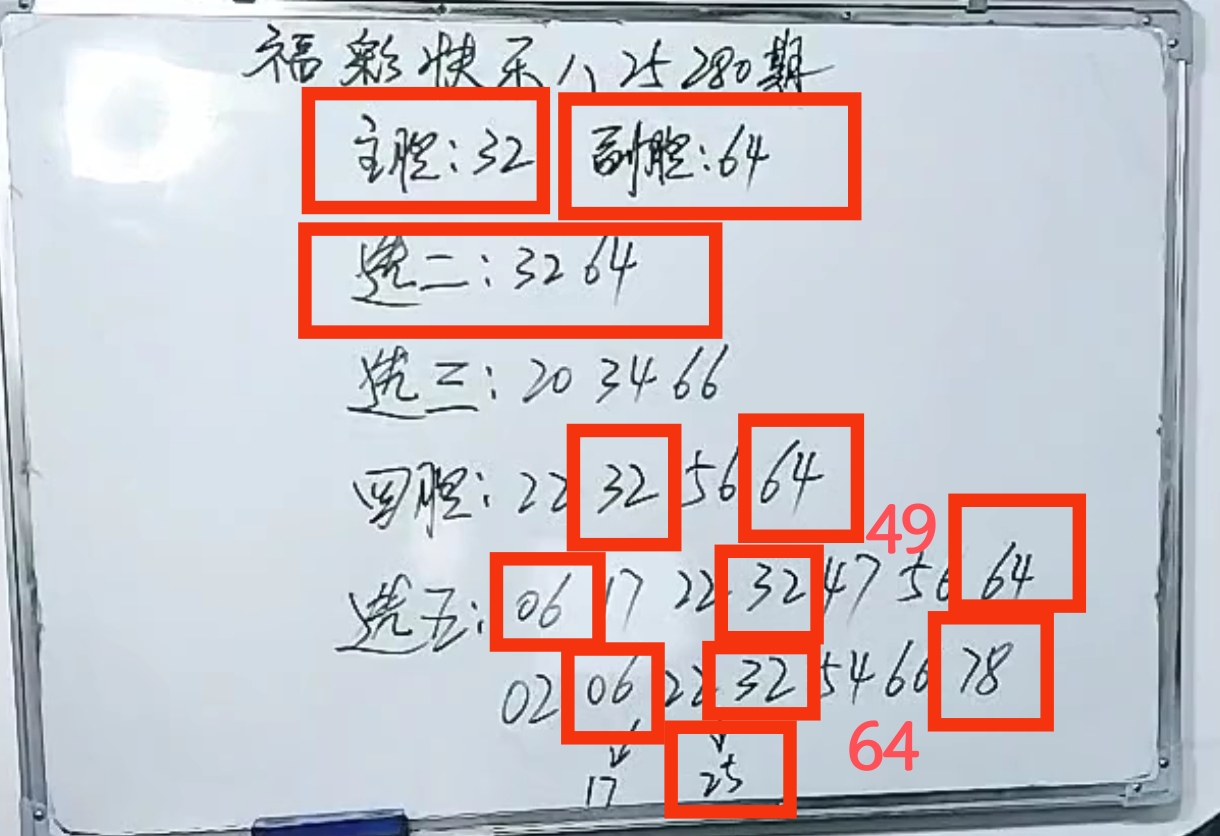 福彩快乐八25280期
主胆:32 副胆:64
选二:32 64
选三:20 34 66
四胆:22 32 56 64
49
选五:06 17 22 32 47 56 64
02 06 22 32 54 66 78
64
17 25